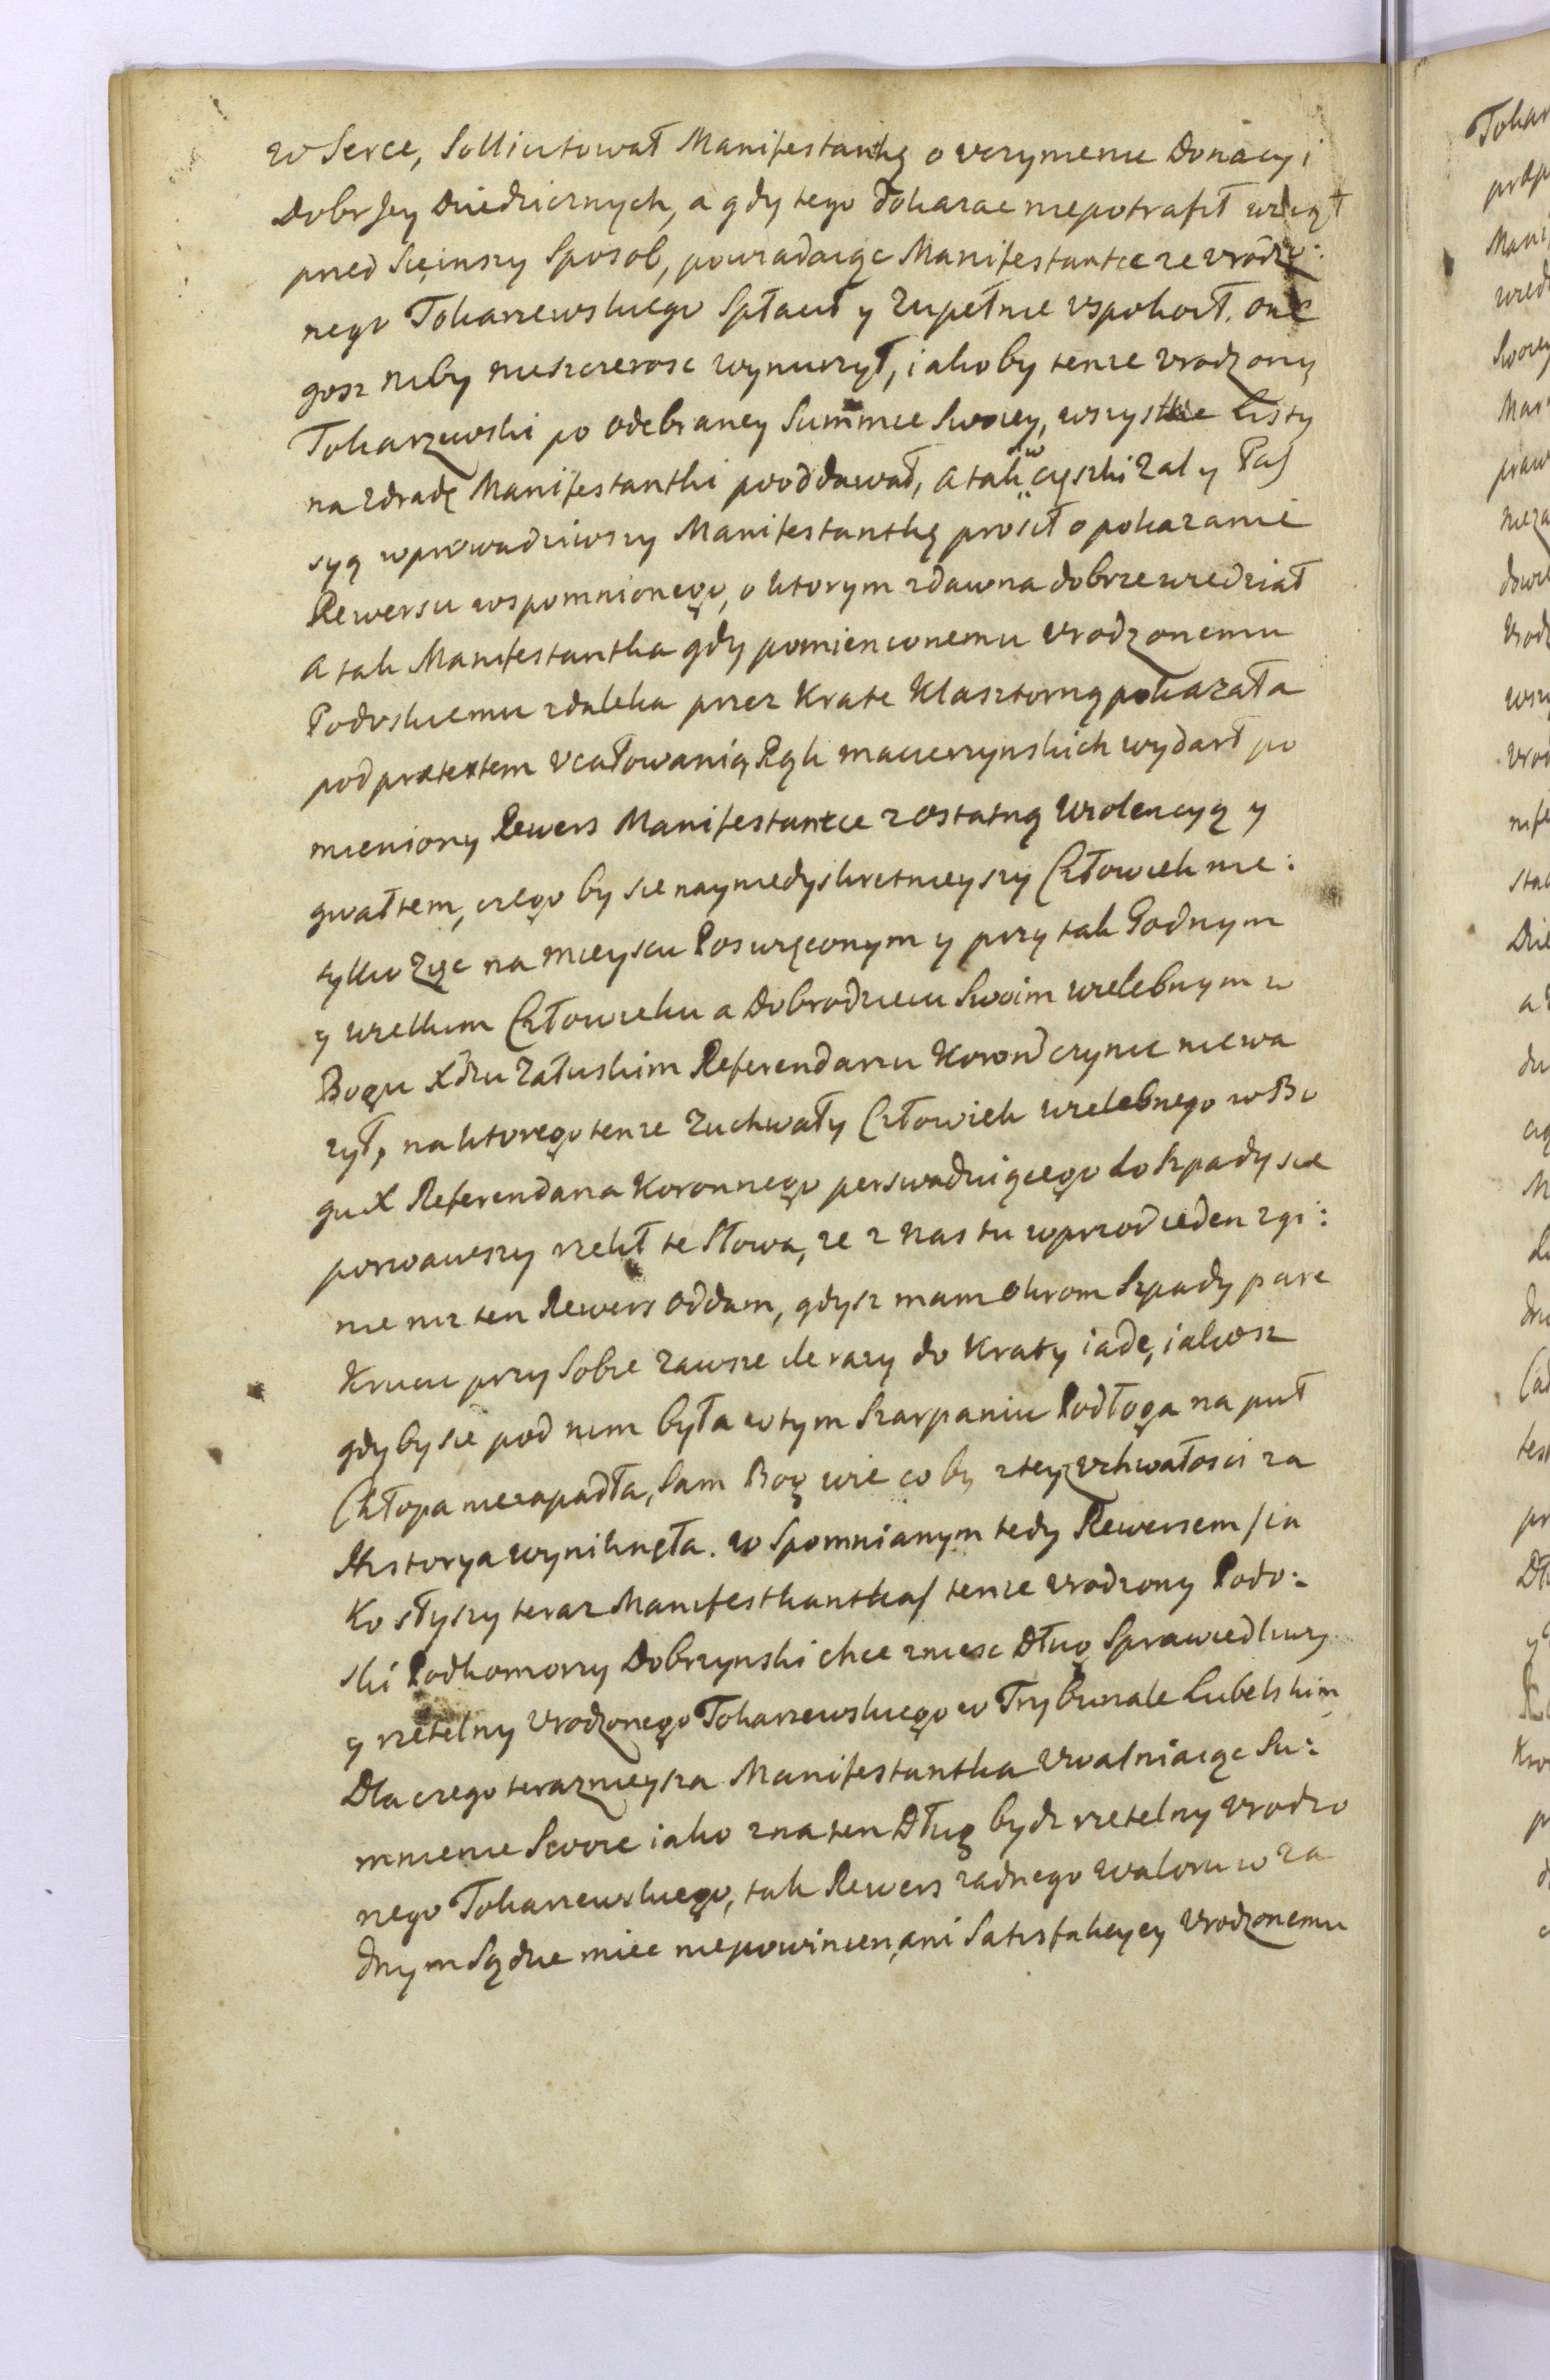 w Serce, Sollicitował Manifestantkę o vczynienie Donacyi
Dobr Jey Dziedzicznych, a gdy tego dokazac niepotrafił wziął
przed Się inszy Sposob, powiadaiąc Manifestantce ze vrodzo:
nego Tokarzewskiego Spłacił y Zupełnie vspokoił. one
gosz niby nieszczerosc wynurzył, iakoby tenze vrodzony
Tokarzewski po odebraney Summie Swoiey, wszystkie Listy
na zdradę Manifestantki pooddawał, a tak w cięszki Zal y Pas
syą wprowadziwszy Manifestantkę prosił o pokazanie
Rewersu wspomnionego, o ktorym zdawna dobrze wiedział
A tak Manifestantka gdy pomienionemu Vrodzonemu
Podoskiemu zdaleka przez Krate Klasztorną pokazała
pod prætextem vcałowanią Rąk macierzynskich wydarł po
mieniony Rewers Manifestantce z ostatną Wiolencyą y
gwałtem, czego by sie nayniedyskretnieyszy Człowiek nie:
tylko Zyc na mieyscu Poswięconym y przy tak Godnym
y wielkim Człowieku a Dobrodzieiu Swoim wielebnym w
Bogu Xdzu Załuskim Referendarzu Koron czynic niewa
zył, na ktorego tenze Zuchwały Człowiek wielebnego w Bo
gu X Referendarza Koronnego perswaduiącego do Szpady sie
porwawszy rzekł te Słowa, ze z nas tu wprzod ieden zgi:
nie niz ten Rewers oddam, gdysz mam okrom Szpady pare
Krucic przy Sobie zawsze ile razy do Kraty iadę, iakosz
gdyby sie pod nim była w tym Szarpaniu Podłoga na puł
Chłopa niezapadła, Sam Bog wie co by z tey zvchwałosci za
Historya wyniknęła. w Spomnianym tedy Rewersem /ia
ko słyszy teraz Manifesthantka/ tenze vrodzony Podo:
ski Podkomorzy Dobrzynski chce zniesc Dług Sprawiedliwy
y rzetelny vrodzonego Tokarzewskiego w Trybunale Lubelskim
Dla czego terazneysza Manifestantka vwalniaiąc Su:
mnienie Swoie iako zna ten Dług bydz rzetelny vrodzo
nego Tokarzewskiego, tak Rewers zadnego waloru w za
dnym Sądzie miec niepowinien, ani Satisfakcyey Vrodzonemu